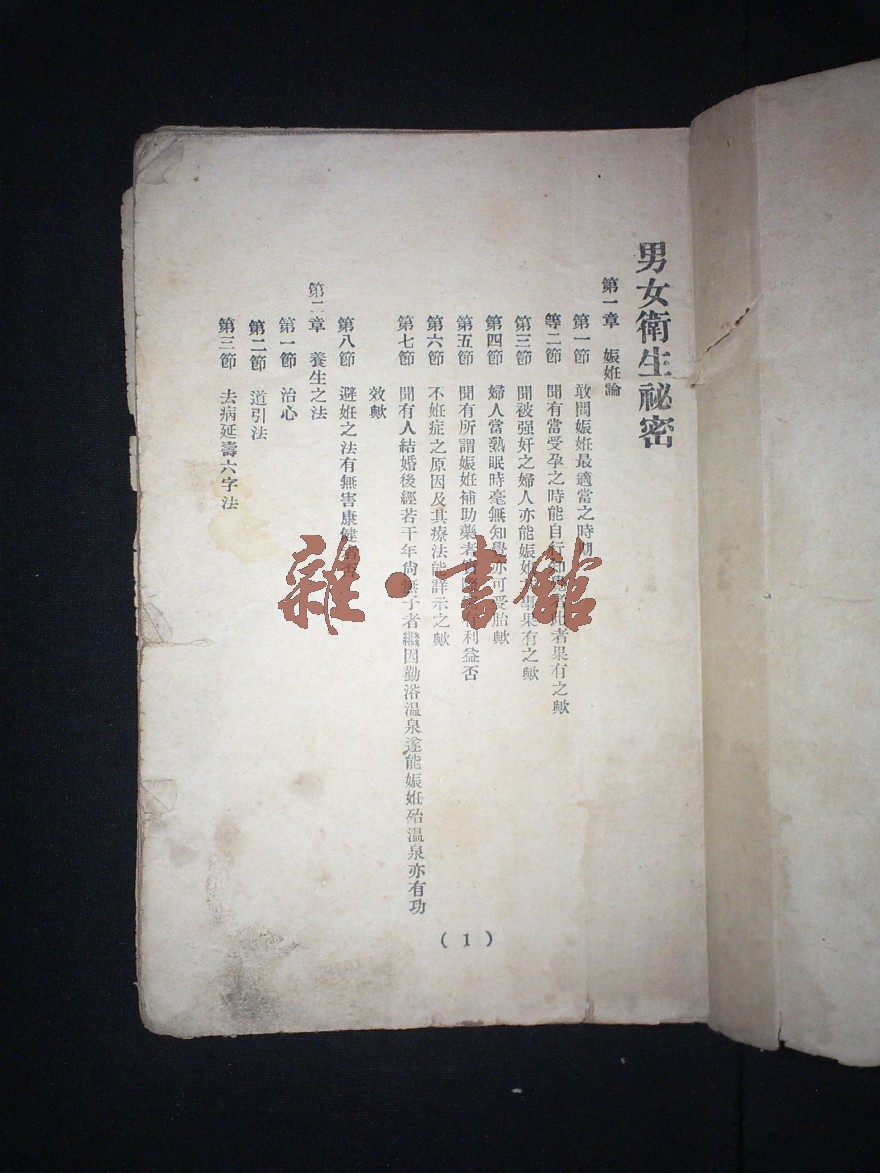 男女衛生祕密
第一章 娠姙論
第一節 敢問娠姙最適當之時期
等二節 聞有當受孕之時能自行者此者果有之歟
第三節 聞被强奸之婦人亦能娠姙事果有之歟
第四節 婦人當熟眠時毫無知覺亦可受胎歟
第五節 聞有所謂娠姙補助藥者有利益否
第六節 不姙症之原因及其療法能詳示之歟
第七節 聞有人結婚後經若干年尙無子者繼因勤浴溫泉遂能娠姙殆溫泉亦有功
效歟
第八節 避姙之法有無害康健否
第二章 養生之法
第一節 治心
第二節 道引法
第三節 去病延壽六字法
(1)
雜·書館